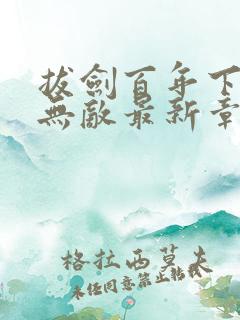 拔劍百年下
無敵最新章
格拉西莫夫
未任同意禁止轉載